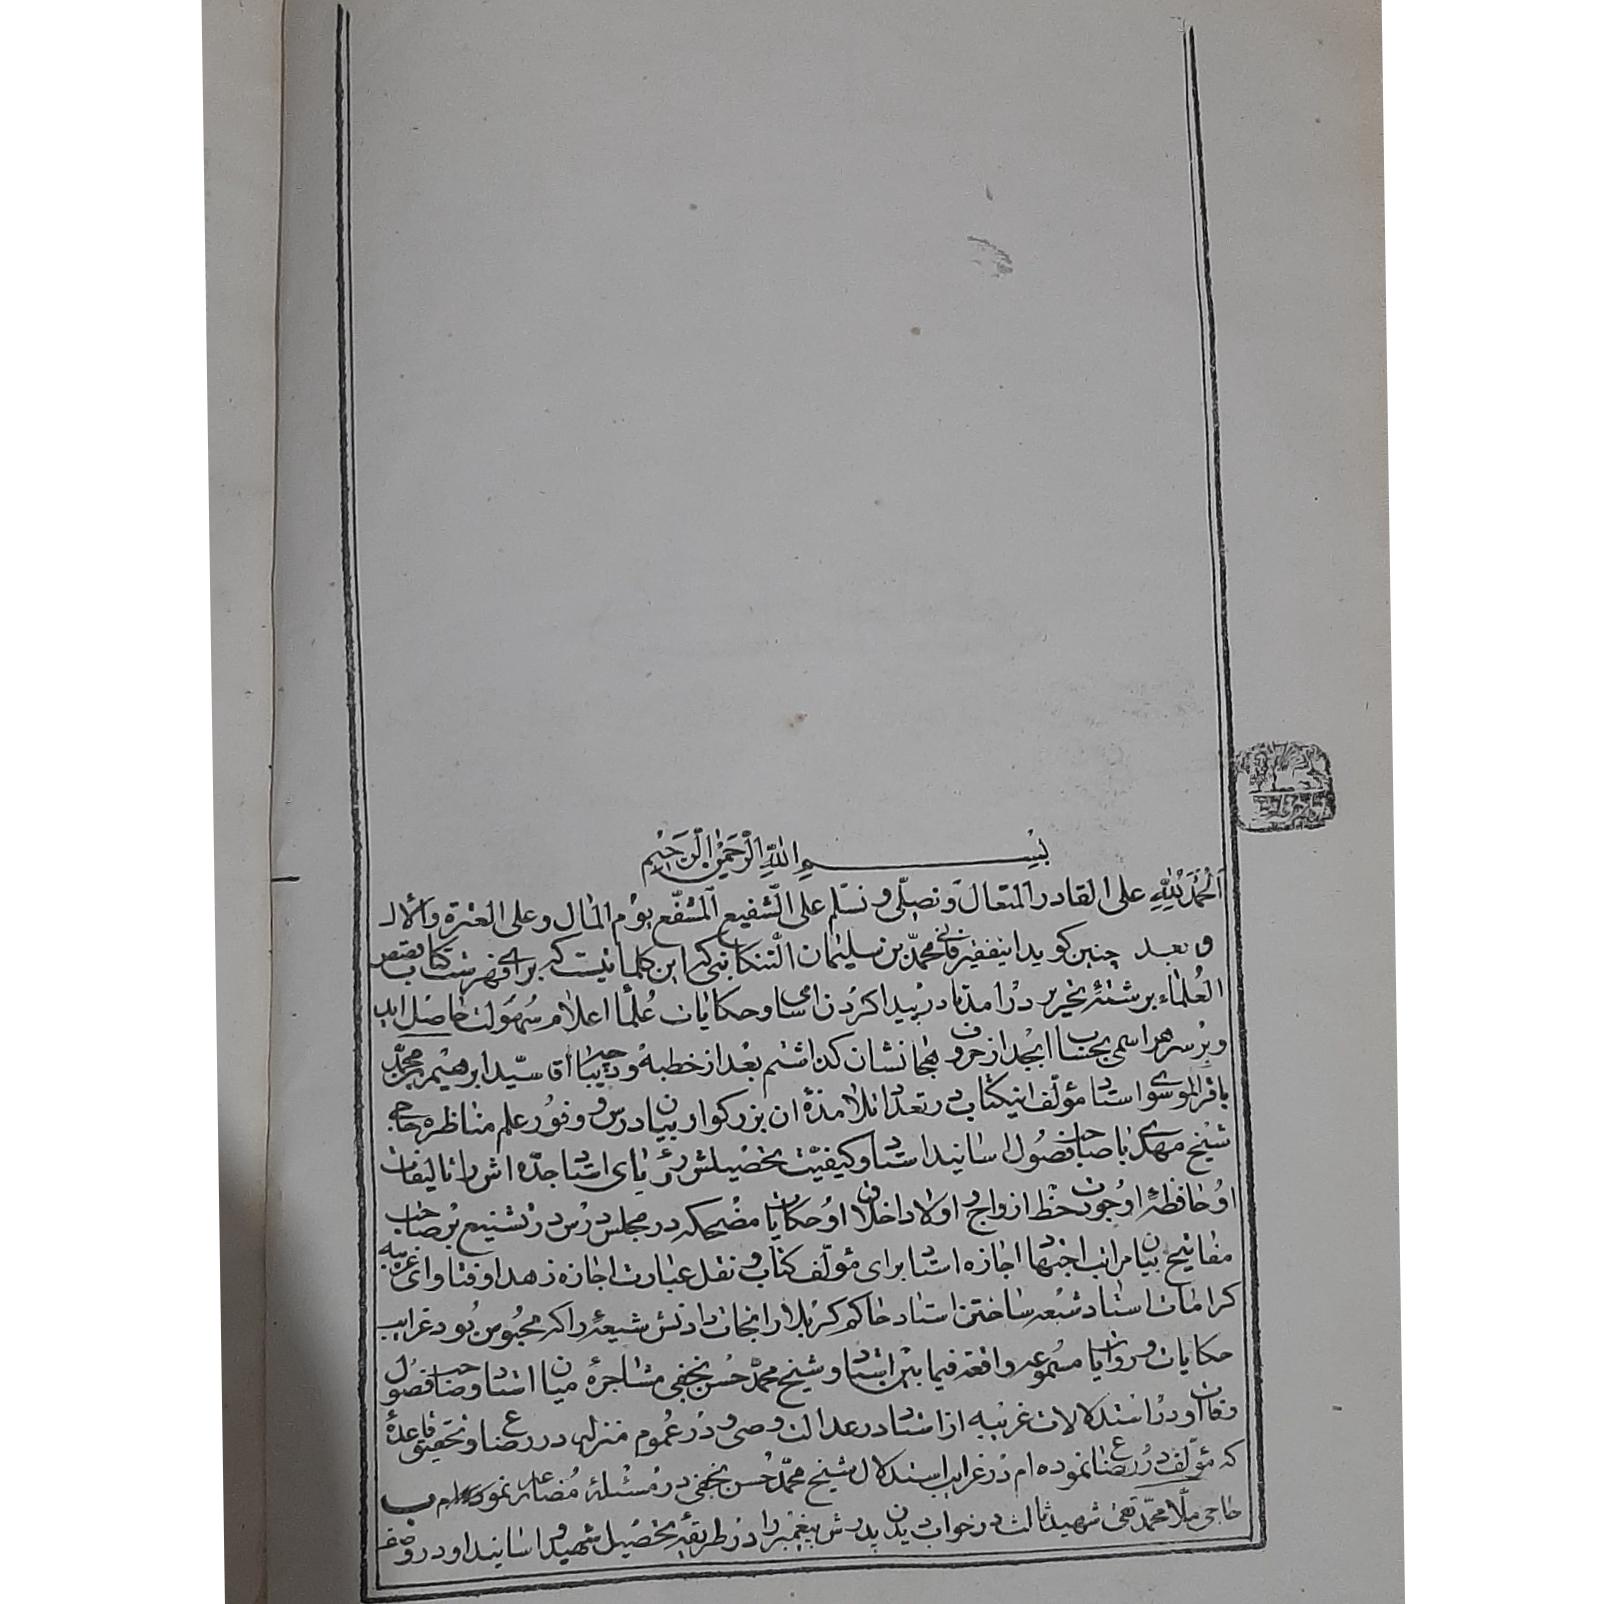 بسم الله الرحمن الرحیم
الحمد لله علی القادر المتعال و نصلّی و نسلّم علی الشّفیع المشفّع یوم المال و علی العترة والآل
و بعد چنین کوید اینفقیر فانی محمّد بن سلیمان التنکابنی که این کلماتیست که برای فهرست کتاب قصص
العلماء برشتهٔ تحریر درامد تا در پیدا کردن اسامی و حکایات علما اعلام سهولت حاصل اید
و بر سر هر اسمی بحساب ابجد از حروف هجا نشان کذاشتم بعد از خطبه و دیباچه ا اقا سیّد ابرهیم بن محمّد
باقر الموسوی استاد مؤلّف اینکتاب در تعداد تلامذهٔ ان بزرکوار بیان درس و وفور علم مناظره حاجی
شیخ مهدی با صاحب فصول اسانید استاد و کیفیّت تحصیلش رؤیای استاد جدّه اش را تالیفات
او حافظهٔ او جودت خط ازواج و اولاد اخلاق او حکایات مضحکه در مجلس درس در تشنیع بر صاحب
مفاتیح بیان مراتب اجتهاد اجازه استاد برای مؤلّف کتاب و نقل عبارت اجازه زهد او فتاوای غریبه
کرامات استاد شیعه ساختن استاد حاکم کربلا را نجات دادنش شیعهٔ را که محبوس بود غرایب
حکایات و روایات مسموعه واقعه فیما بین استاد و شیخ محمّد حسن نجفی مشاجرهٔ میان استاد و صاحب فصول
وفات او در استدلالات غریبه از استاد در عدالت وصی و در عموم منزله در رضاع و تحقیق قاعدهٔ
که مؤلّف در رضاع نموده ام در غرایب استدلال شیخ محمّد حسن نجفی در مسئلهٔ مضاربه نموده ام ب
حاجی ملّا محمّد تقی شهید ثالث در خواب دیدن پدرش پیغمبر را در طریقهٔ تحصیل شهید و اسانید او در وصف